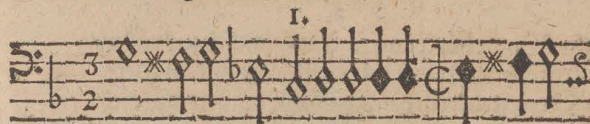 I.
3
2